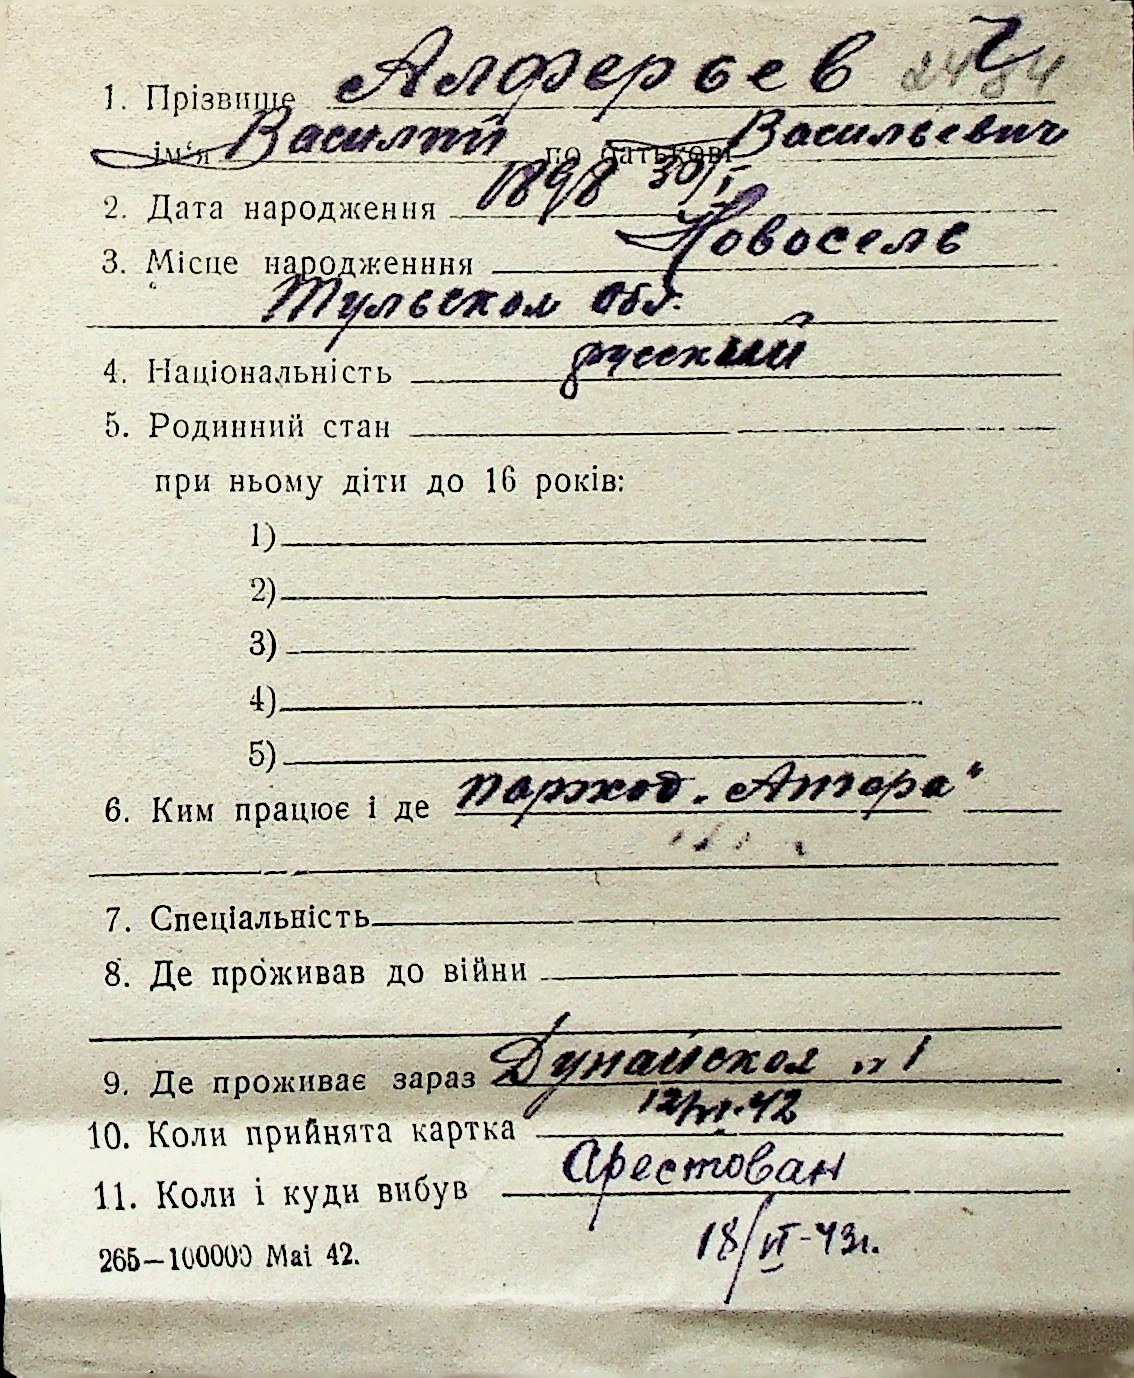 1. Прізвище Алферьев
ім'я Василий по батькові Васильевич
2. Дата народження 1898 30/I
3. Місце народженння Новосель
Тульской обл.
4. Національність русский
5. Родинний стан
при ньому діти до 16 років:
1)
2)
3)
4)
5)
6. Ким працює і де пароход. „Ангара"
7. Спеціальність
8. Де проживав до війни
9. Де проживає зараз Дунайская 1
10. Коли прийнята картка 12/VI-42
11. Коли і куди вибув арестован
18/VI-43г.
265—100000 Mai 42.